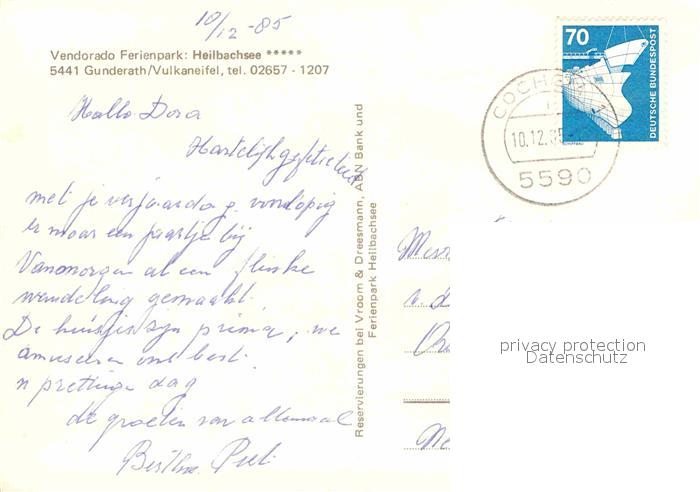 10/12-85
Vendorado Ferienpark: Heilbachsee *****
5441 Gunderath/Vulkaneifel, tel. 02657 - 1207
70
DEUTSCHE BUNDESPOST
COCHEM 1
10.12.85
5590
Hallo Dora
Hartelijk gefeliciteerd
met je verjaardag. voorlopig
er maar een paartje bij
Vanmorgen al een flinke
wandeling gemaakt.
De huisjes zijn prima, we
amuseren ons best.
n prettige dag
de groeten van allemaal
Reservierungen bei Vroom & Dreesmann, ABN Bank und
Ferienpark Heilbachsee
privacy protection
Datenschutz